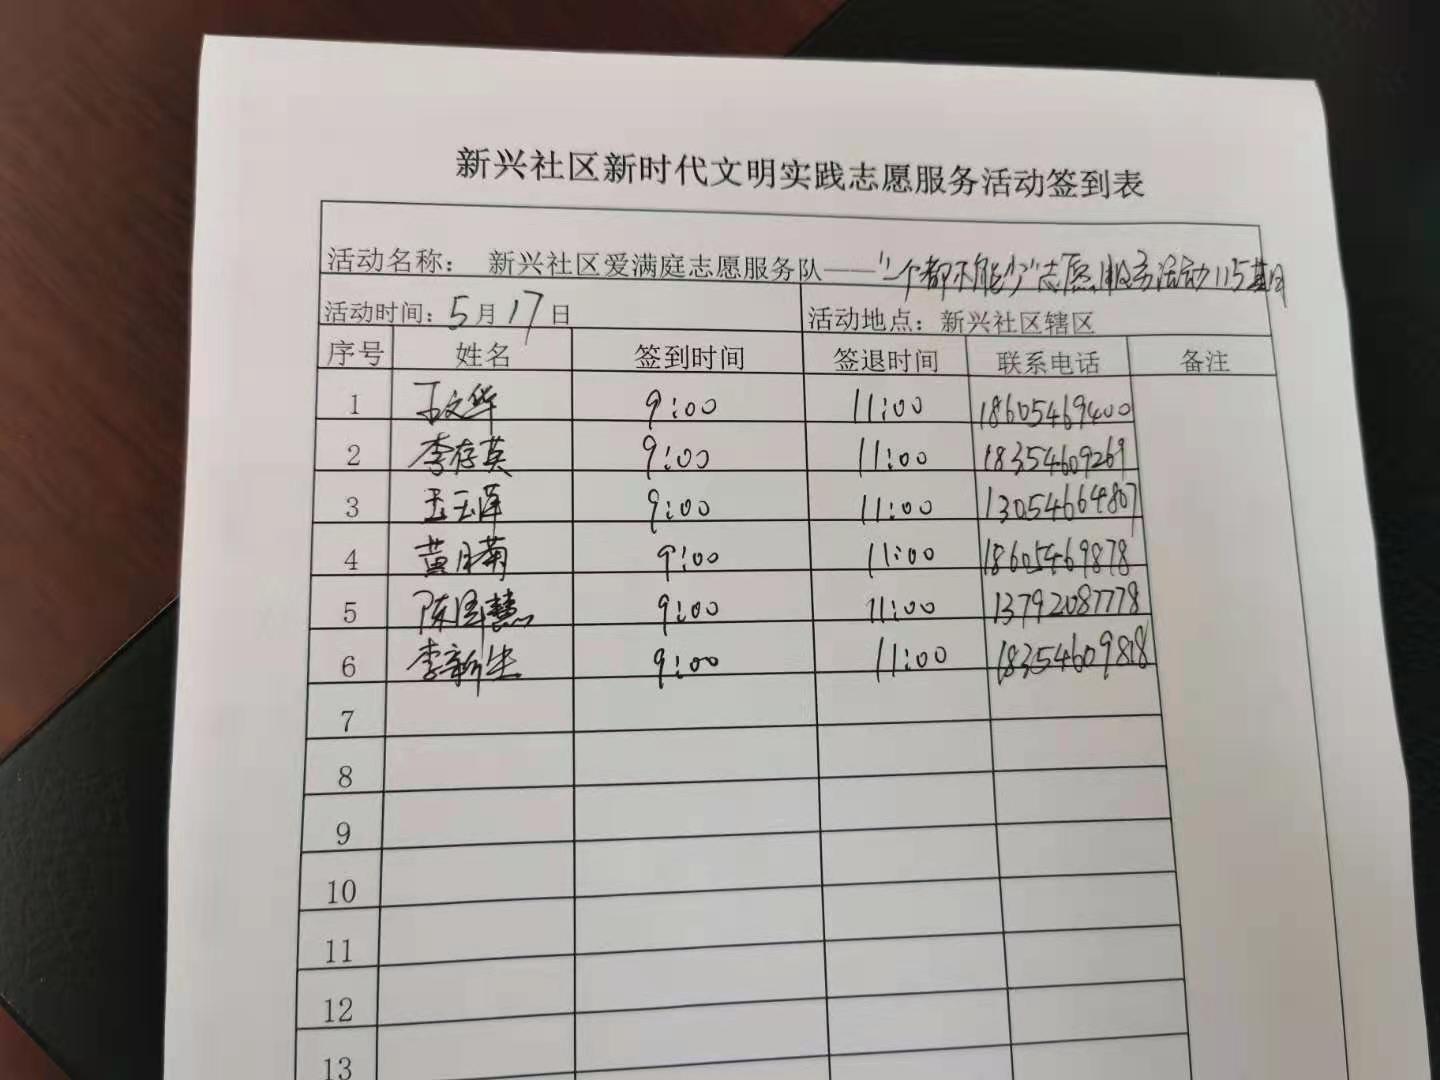 新兴社区新时代文明实践志愿服务活动签到表
活动名称： 新兴社区爱满庭志愿服务队——“一个都不能少”志愿服务活动115期
活动时间：5月17日 活动地点：新兴社区辖区
序号 姓名 签到时间 签退时间 联系电话 备注
1 王文华 9:00 11:00 18605469400
2 李存英 9:00 11:00 18354609269
3 王玉泽 9:00 11:00 13054664807
4 黄月菊 9:00 11:00 18605469878
5 陈国慧 9:00 11:00 13792087778
6 李新生 9:00 11:00 18354609818
7
8
9
10
11
12
13